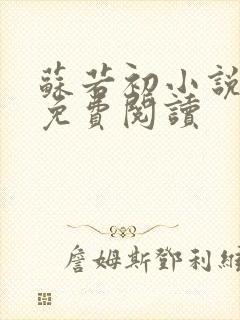 蘇若初小說
免費閱讀
詹姆斯鄧利維